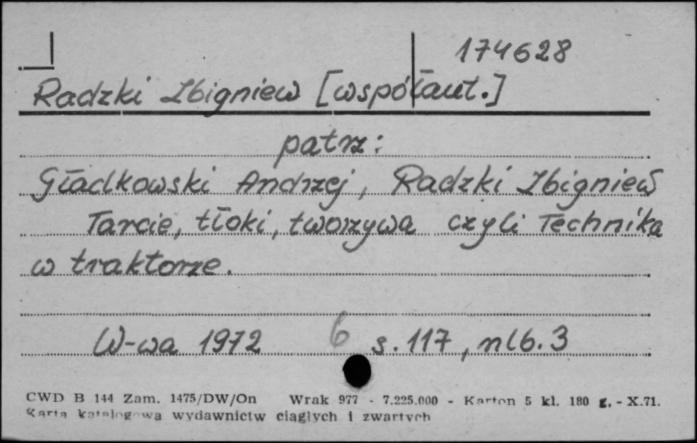 174628
Radzki Zbigniew [współaut.]
patrz:
Gładkowski Andrzej, Radzki Zbigniew
Tarcie, tłoki, tworzywa czyli Technika
w traktorze.
W-wa 1972 6 s. 117, nlb. 3
CWD B 144 Zam. 1475/DW/On Wrak 977 - 7.225.000 - Karton 5 kl. 180 g. - X.71.
Karta katalogowa wydawnictw ciągłych i zwartych